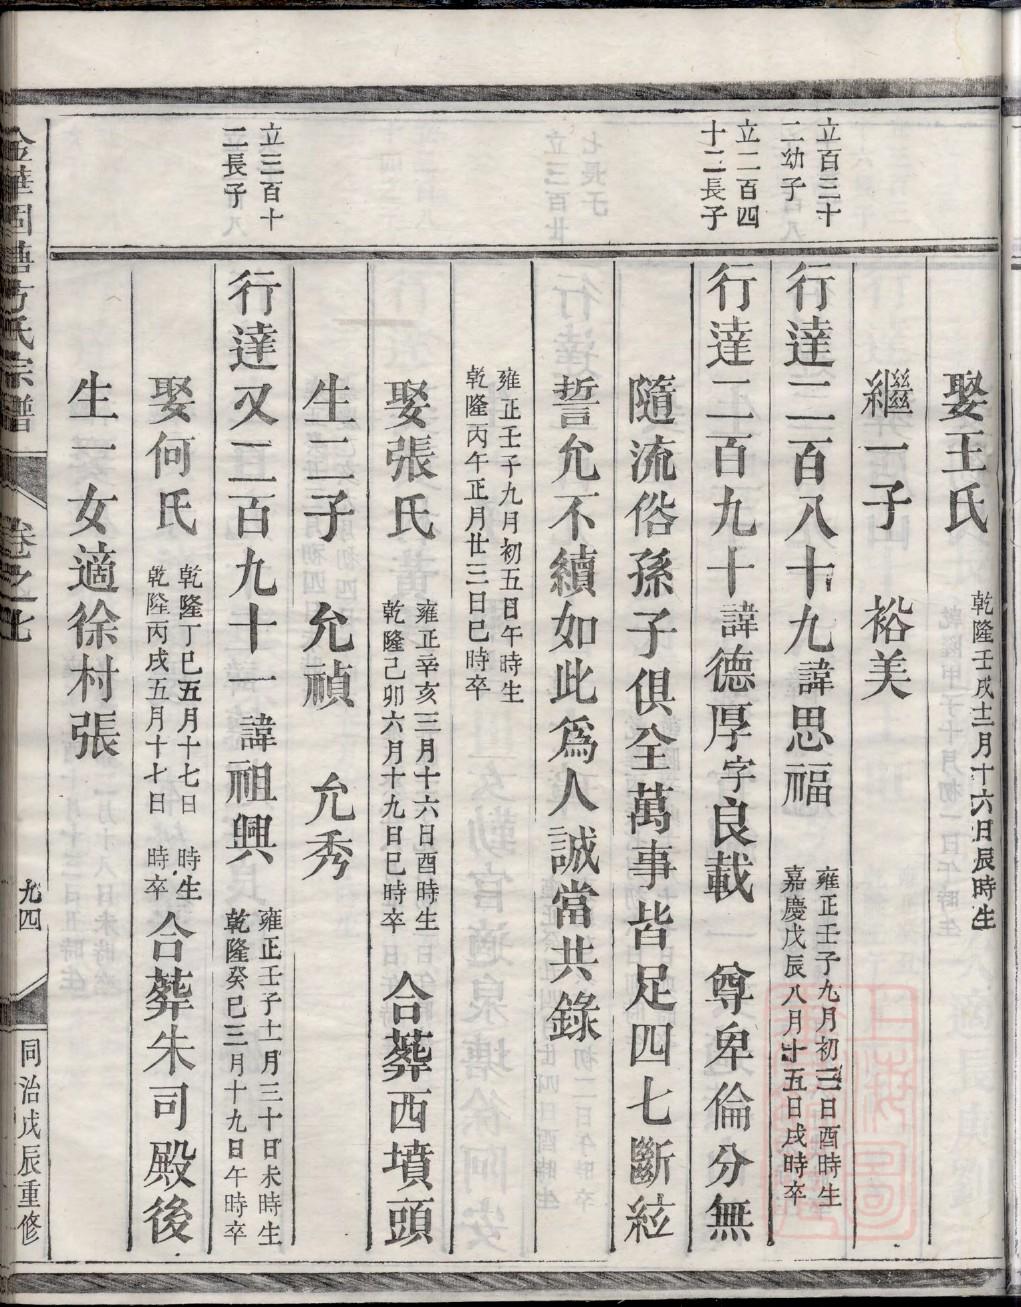 娶王氏 乾隆壬戌十二月十六日辰時生
繼一子 裕美
立百三十
二幼子
行達二百八十九諱思福 雍正壬子九月初三日酉時生
嘉慶戊辰八月十五日戌時卒
立二百四
十二長子
行達二百九十諱德厚字良載 尊卑倫分無
隨流俗孫子俱全萬事皆足四七斷絃
誓允不續如此爲人誠當共錄
雍正壬子九月初五日午時生
乾隆丙午正月廿三日巳時卒
娶張氏 雍正辛亥三月十六日酉時生
乾隆己卯六月十九日巳時卒
合葬西墳頭
生二子 允禎 允秀
立三百十
二長子
行達又二百九十一諱祖興 雍正壬子十一月三十日未時生
乾隆癸巳三月十九日午時卒
娶何氏 乾隆丁巳五月十七日 時生
乾隆丙戌五月十七日 時卒
合葬朱司殿後
生一女適徐村張
金華固塘方氏宗譜
卷之七
九四
同治戊辰重修